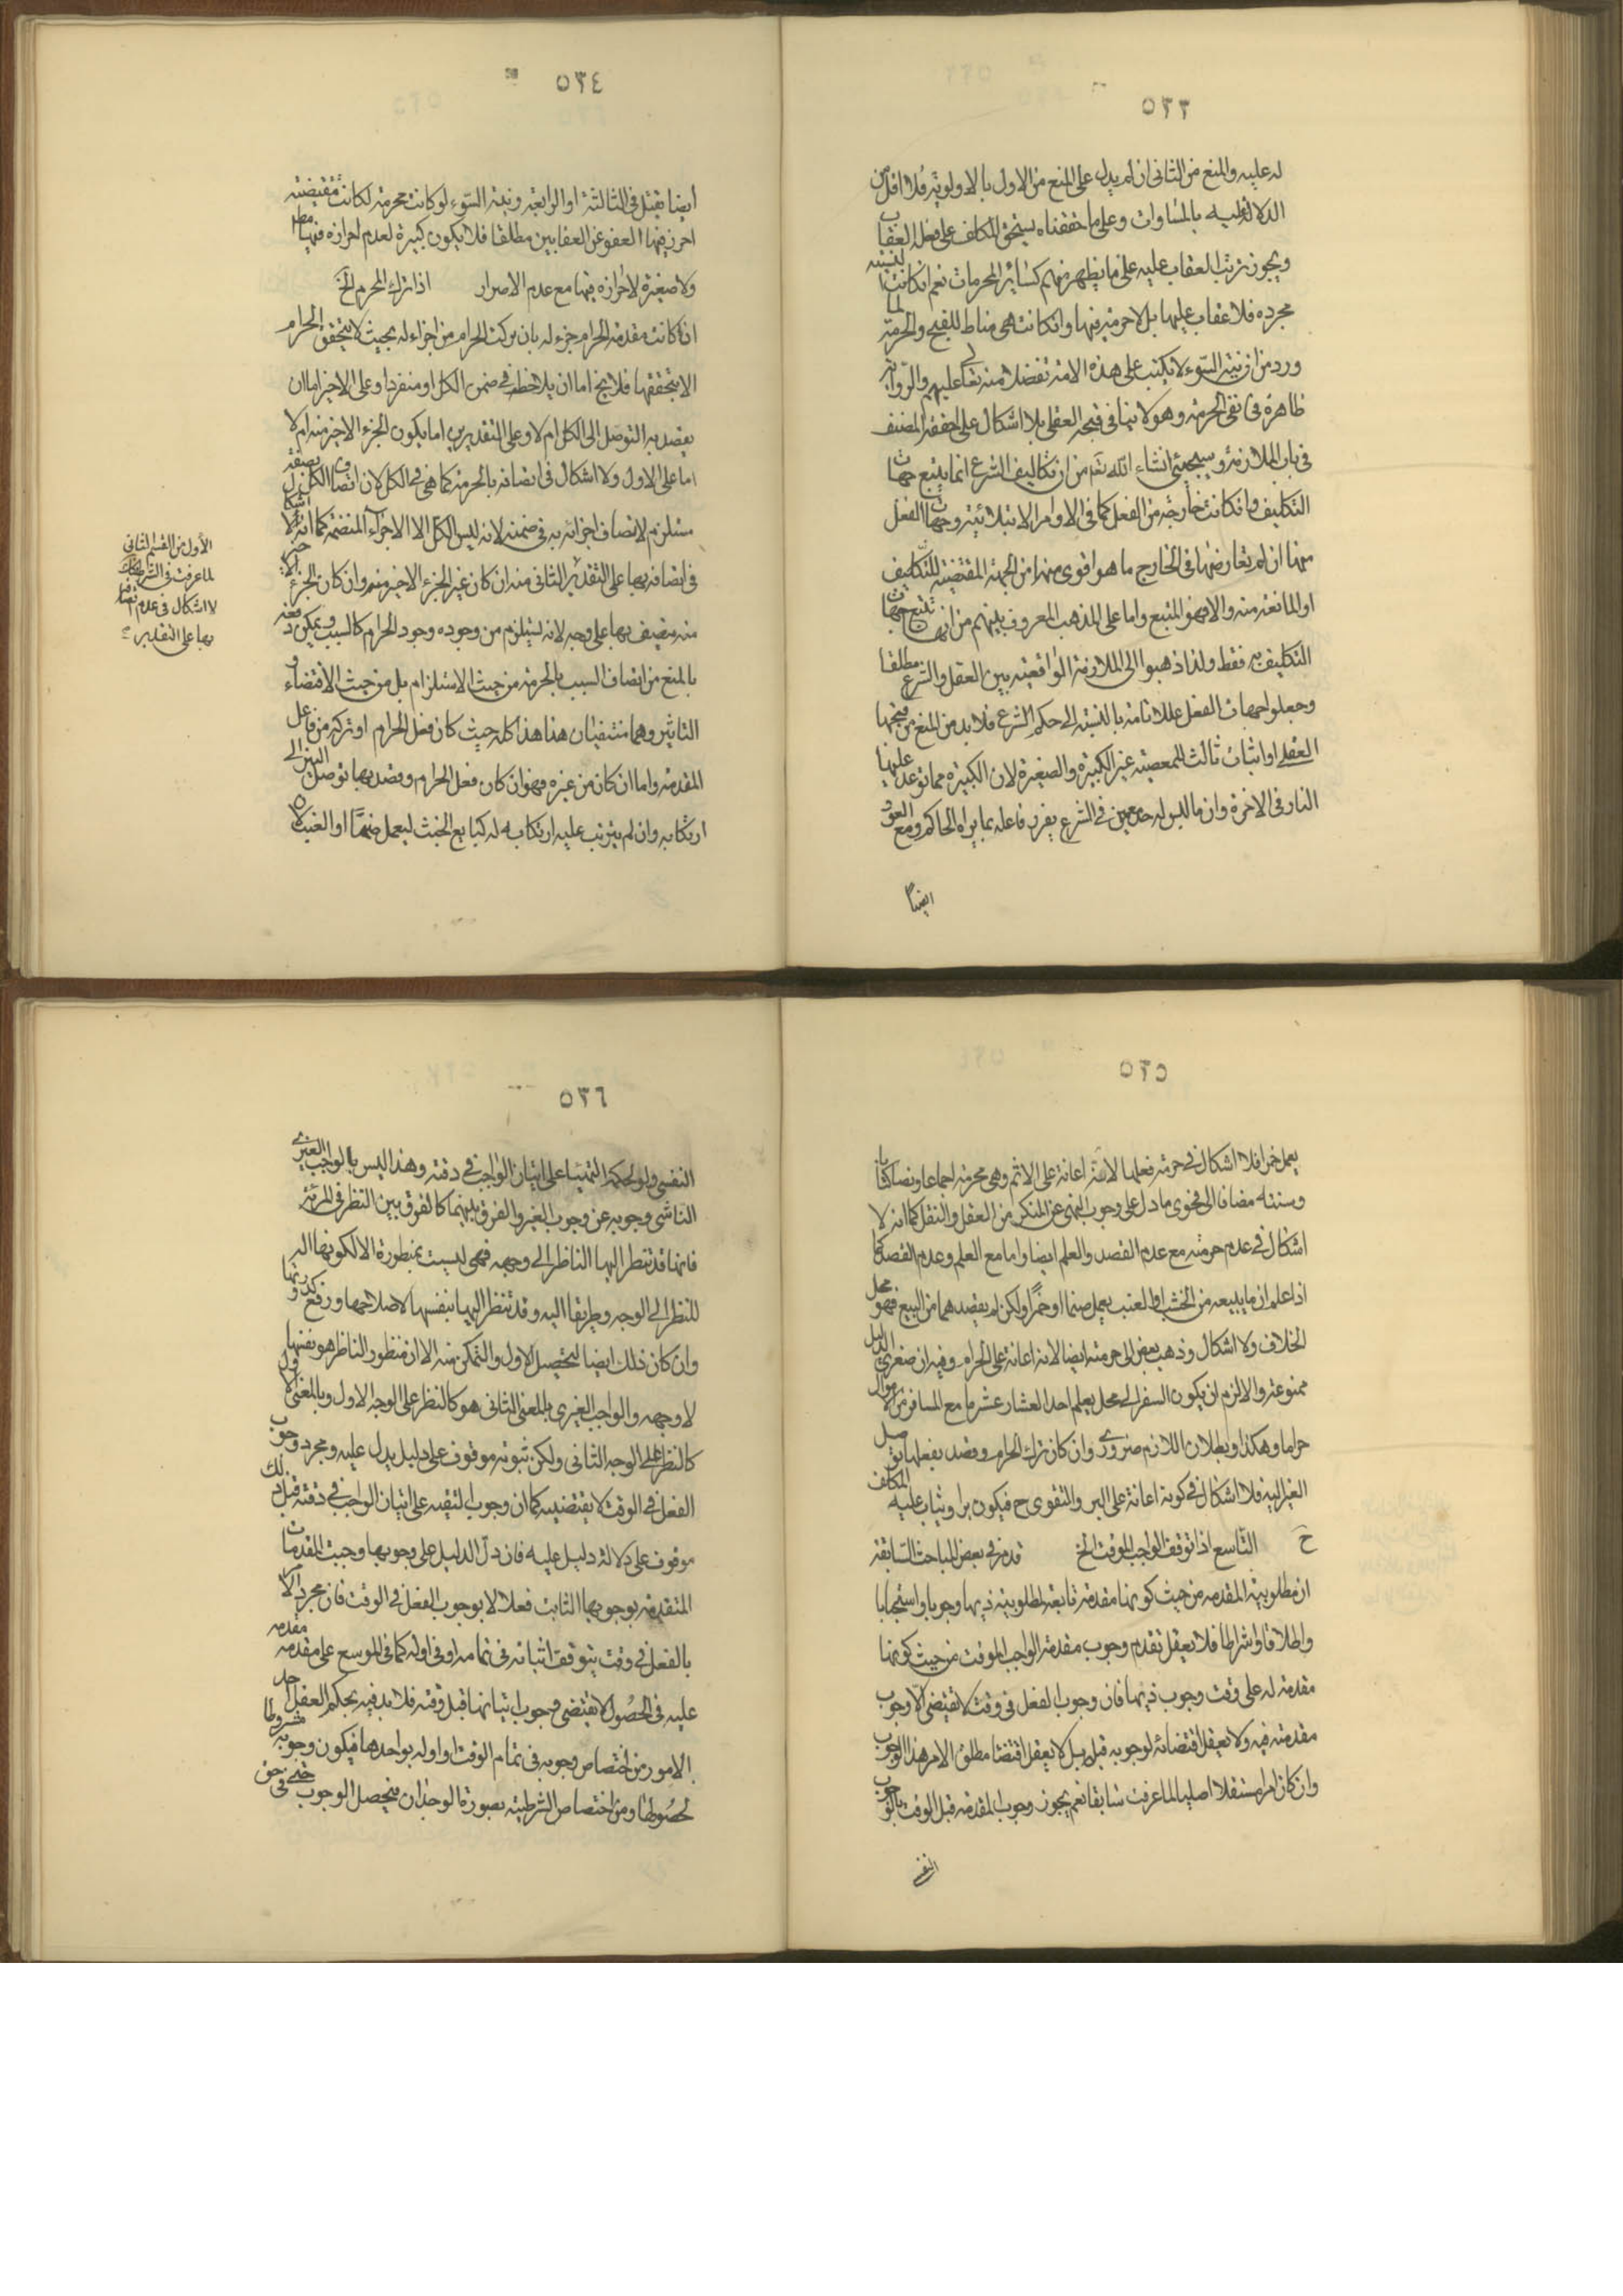 ٥٣٣
له عليه والمنع من الثاني ان لم يدل على المنع من الاول بالاولوية فلا اقل من
الدلالة عليه بالمساوات وعلى ما حققناه يستحق المكلف على فعله العقاب
ويجوز ترتب العقاب عليه على ما يظهر منهم كسائر المحرمات نعم ان كانت النية
مجرده فلا عقاب عليها بل لا حرمة فيها وان كانت هي مناط للقبح والحرمة لما
ورد من ان نية السوء لا يكتب على هذه الامة تفضلا منه تعالى عليهم والرواية
ظاهرة في نفي الحرمة وهو لا ينافي قبحه العقلي بلا اشكال على ما حققه المصنف
في باب الملازمة وسيجيئ انشاء الله تعم من ان تكاليف الشرع انما يتبع جهات
التكليف وان كانت خارجة من الفعل كما في الاوامر الابتلائية وجهات الفعل
مهما ان لم يعارضها في الخارج ما هو اقوى منها من الجهة المقتضية للتكليف
او المانعة منه والا فهو المتبع واما على المذهب المعروف بينهم من انها تتبع جهات
التكليف به فقط ولذا ذهبوا الى الملازمة الواقعية بين العقل والشرع مطلقا
وجعلوا جهات الفعل عللا تامة بالنسبة الى حكم الشرع فلا بد من المنع من قبحها
العقلي او اثبات ثالث للمعصية غير الكبيرة والصغيرة لان الكبيرة مما توعد عليها
النار في الاخرة وان ما ليس له حد معين في الشرع يعزر فاعله بما يراه الحاكم ومع العود
ايضا
٥٣٤
ايضا يقتل في الثالثة او الرابعة ونية السوء لو كانت محرمة لكانت مقتضية
احرز فيها العفو عن العقابين مطلقا فلا يكون كبيرة لعدم احرازه فيها مطلقا
ولا صغيرة لاحرازه فيها مع عدم الاصرار اذا ترك المحرم الخ
ان كانت مقدمة الحرام جزء له بان يركب الحرام من اجزاء له بحيث لا يتحقق الحرام
الا بتحققها فلا يخ اما ان يلاحظ في ضمن الكل او منفردا وعلى الاخير اما ان
يقصد به التوصل الى الكل ام لا وعلى التقديرين اما يكون الجزء الاخير منه ام لا
اما على الاول ولا اشكال في اتصافه بالحرمة كما هي في الكل لان اتصاف الكل بصفة
مستلزم لاتصاف اجزائه به في ضمنه لانه ليس الكل الا الاجزاء المنضمة كما انه لا اشكال
في اتصافه بها على التقدير الثاني منه ان كان غير الجزء الاخير منه وان كان الجزء الاخير
منه يتصف بها على وجه لانه يستلزم من وجوده وجود الحرام كالسبب ويمكن دفعه
بالمنع من اتصاف السبب بالحرمة من حيث الاستلزام بل من حيث الاقتضاء و
التاثير وهما منتفيان هنا هذا كله حيث كان فعل الحرام او تركه من فاعل
المقدمة واما ان كان من غيره فهو ان كان فعل الحرام وقصد بها توصل الغير الى
ارتكابه وان لم يترتب عليه ارتكابه له كبايع الخشب ليعمل صنما او العنب لان
الاول من القسم الثاني
لما عرفت في الشرط كك
لا اشكال في عدم اتصافه
بها على التقدير
٥٣٥
يعمل خمرا فلا اشكال في حرمة فعلها لانه اعانة على الاثم وهي محرمة اجماعا ونصا كتابا
وسنته مضافا الى فحوى ما دل على وجوب النهي عن المنكر من العقل والنقل كما انه لا
اشكال في عدم حرمته مع عدم القصد والعلم ايضا واما مع العلم وعدم القصد كما
اذا علم ان ما يبيعه من الخشب او العنب يعمل صنما او خمرا ولكن لم يقصدهما من البيع فهو محل
الخلاف ولا اشكال وذهب بعض الى حرمته ايضا لانه اعانة على الحرام وفيه ان صغرى الدليل
ممنوعة والا لزم ان يكون السفر الى محل يعلم اخذ العشار عشر ما مع المسافر من الاموال
حراما وهكذا وبطلان اللازم ضروري وان كان ترك الحرام وقصد بفعلها توصل
الغير اليه فلا اشكال في كونه اعانة على البر والتقوى ح فيكون برا ويثاب عليه المكلف
ح التاسع اذا توقف الواجب الموقت الخ قد مر في بعض المباحث السابقة
ان مطلوبية المقدمة من حيث كونها مقدمة تابعة لمطلوبية ذيها وجوبا واستحبابا
واطلاقا واشراطا فلا يعقل تقدم وجوب مقدمة الواجب الموقت من حيث كونها
مقدمة له على وقت وجوب ذيها فان وجوب الفعل في وقت لا يقتضي الا وجوب
مقدمته فيه ولا يعقل اقتضائه لوجوبه قبله بل لا يعقل اقتضا مطلق الامر هذا الوجوب
وان كان امرا مستقلا اصليا لما عرفت سابقا نعم يجوز وجوب المقدمة قبل الوقت بالوجوب
النفسي
٥٣٦
النفسي ولو لحكمة التهيئا على اتيان الواجب في وقته وهذا ليس بالواجب الغيري
الناشي وجوبه عن وجوب الغير والفرق بينهما كالفرق بين النظر في المرئة
فانها قد تنظر اليها الناظر الى وجهه فهي ليست بمنظورة الا لكونها الة
للنظر الى الوجه وطريقا اليه وقد تنظر اليها بنفسها لاصلاحها ورفع كدورتها
وان كان ذلك ايضا لتحصيل الاول والتمكن منه الا ان منظور الناظر هو نفسها
لا وجهه والواجب الغيري بالمعنى الثاني هو كالنظر على الوجه الاول وبالمعنى الاول
كالنظر على الوجه الثاني ولكن ثبوته موقوف على دليل يدل عليه ومجرد وجوب
الفعل في الوقت لا يقتضيه كما ان وجوب التقيه على اتيان الواجب في وقته قبل ذلك
موقوف على دلالة دليل عليه فان دل الدليل على وجوبها وجبت المقدمات
المتقدمة بوجوبها الثابت فعلا لا بوجوب الفعل في الوقت فان مجرد الامر
بالفعل في وقت يتوقف اتيانه في تمامه او في اوله كما في الموسع على مقدمه مقدمه
عليه في الحصول لا يقتضي وجوب اتيانها قبل وقته فلا بد فيه بحكم العقل احد
الامور من اختصاص وجوبه في تمام الوقت او اوله بواجدها فيكون وجوبه مشروطا
لحصولها ومن اختصاص الشرطية بصورة الوجدان فيحصل الوجوب حتى في حق